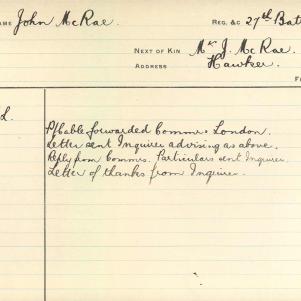 NAME John McRae. REG. &C 27th Batt
NEXT OF KIN Mr J. McRae.
ADDRESS Hawker.
L.
P/Cable forwarded Commr. London.
Letter sent Inquirer advising as above.
Reply from Commrs. Particulars sent Inquirer.
Letter of thanks from Inquirer.